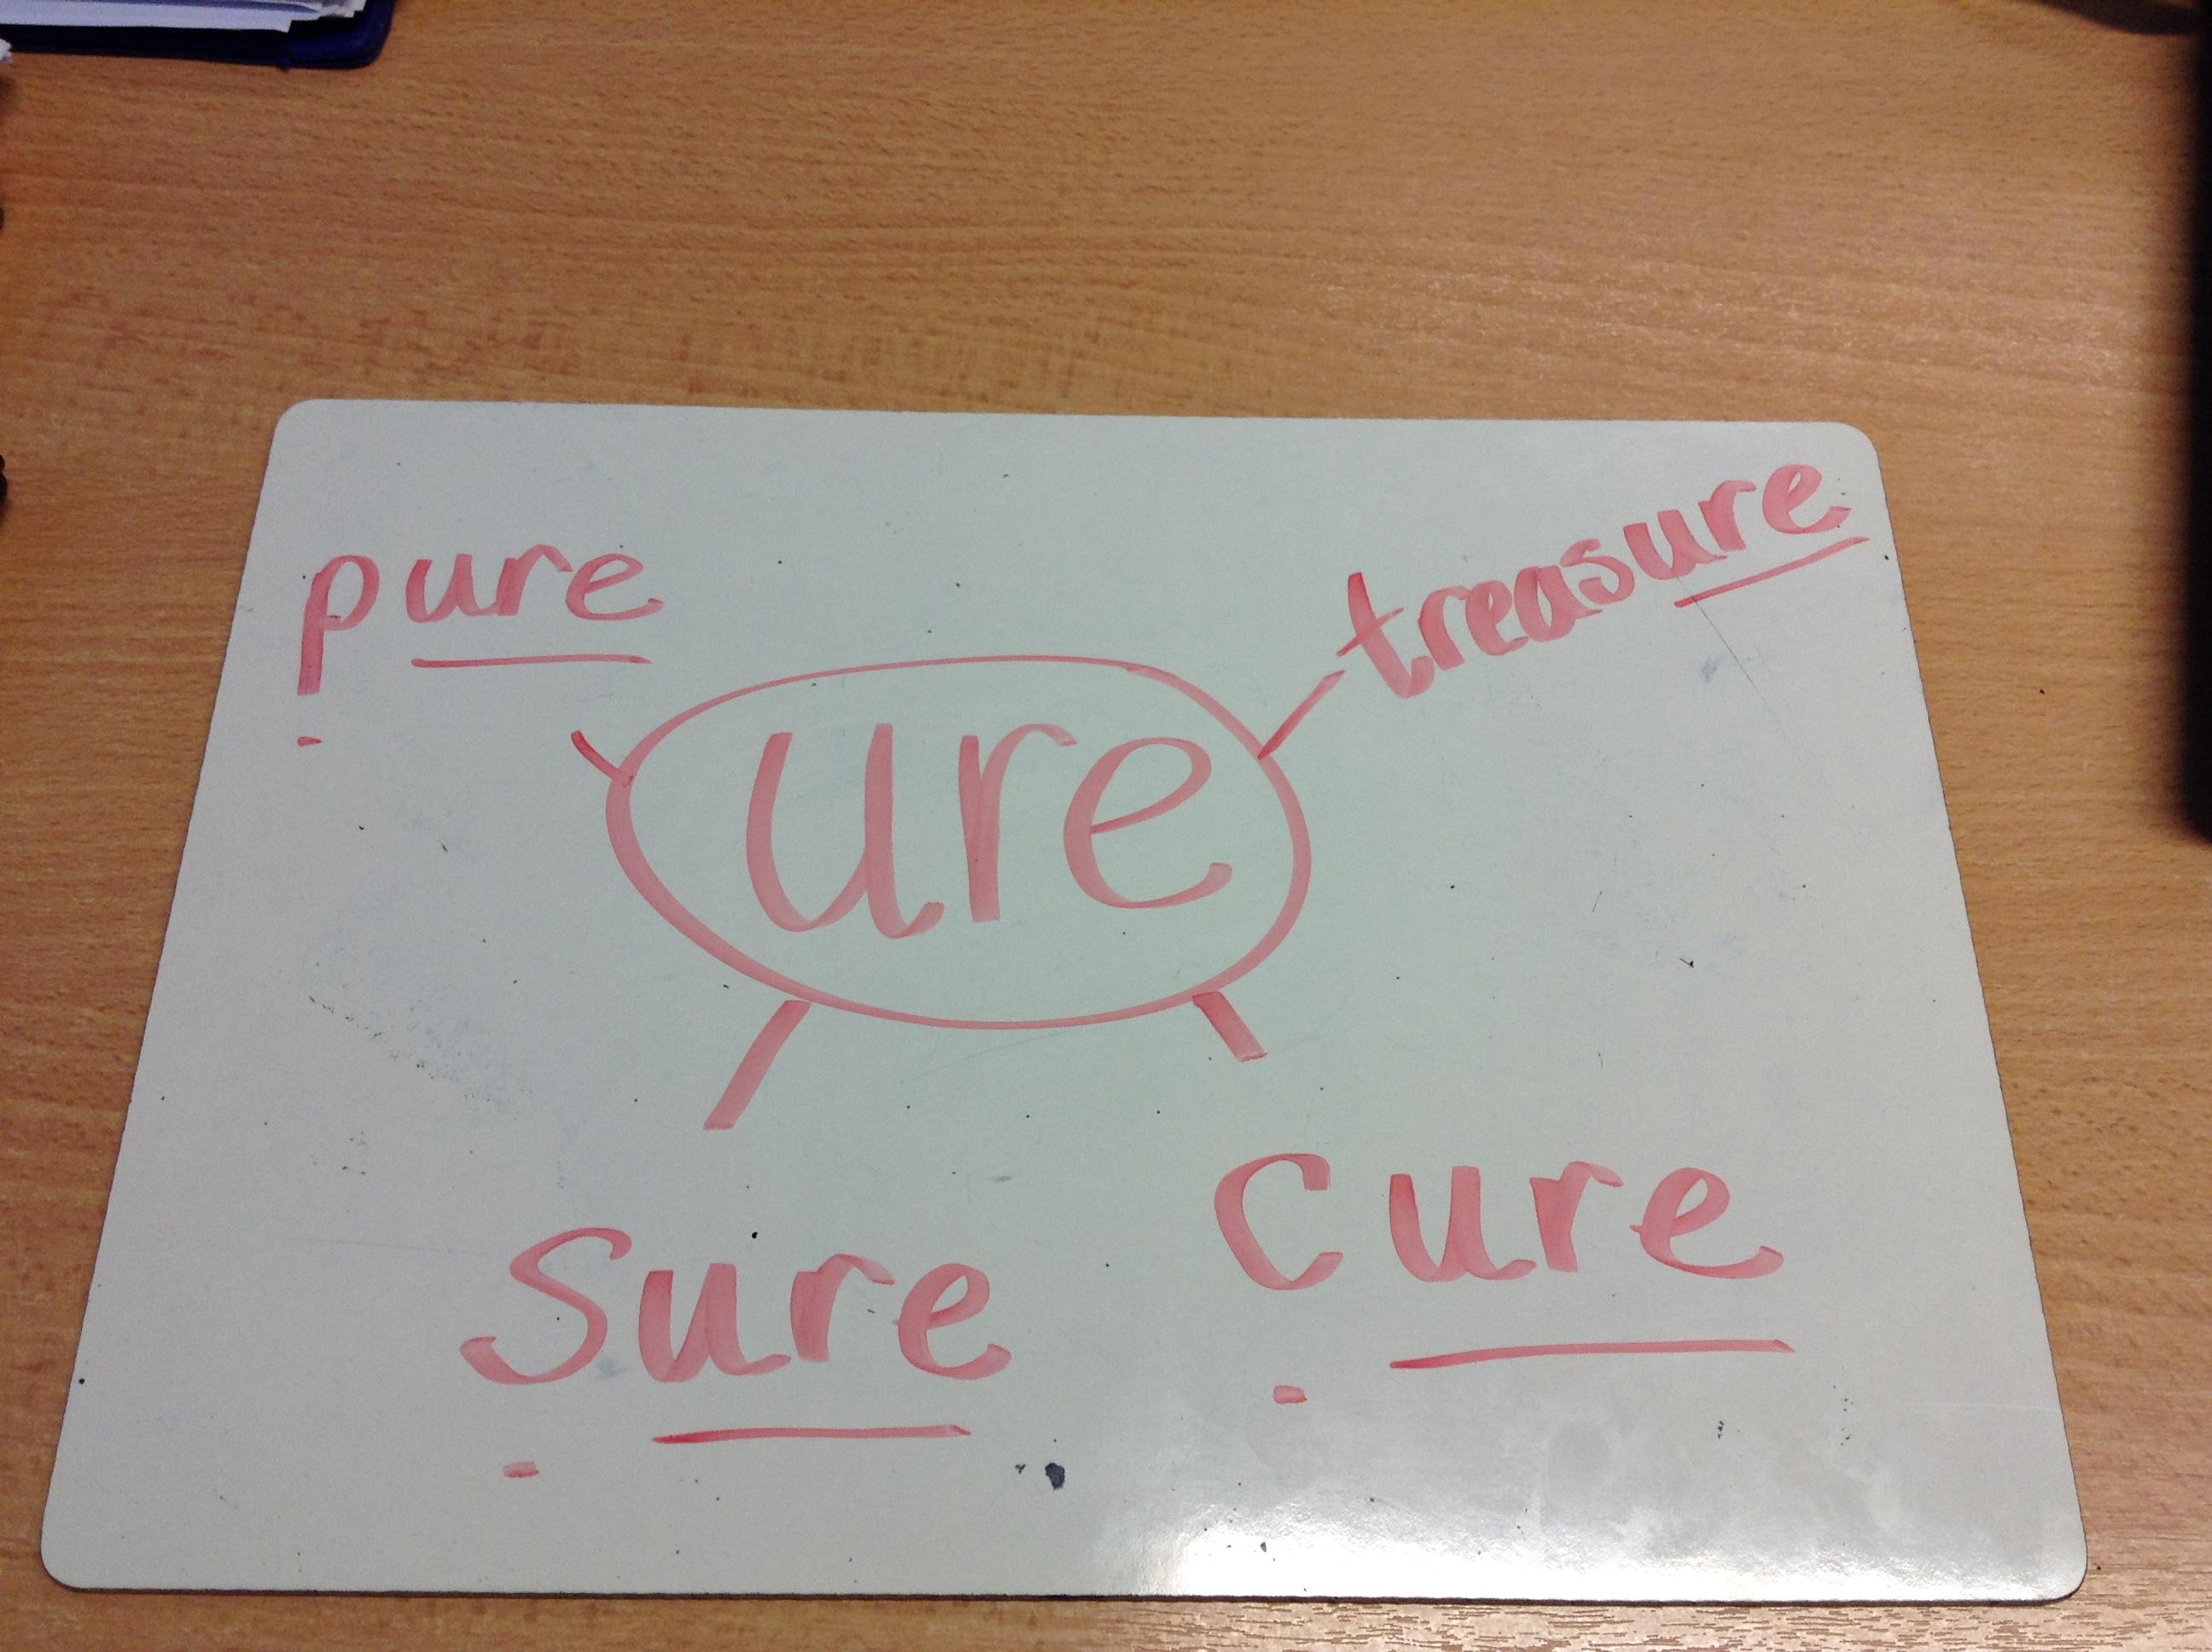 pure
treasure
ure
Sure
Cure